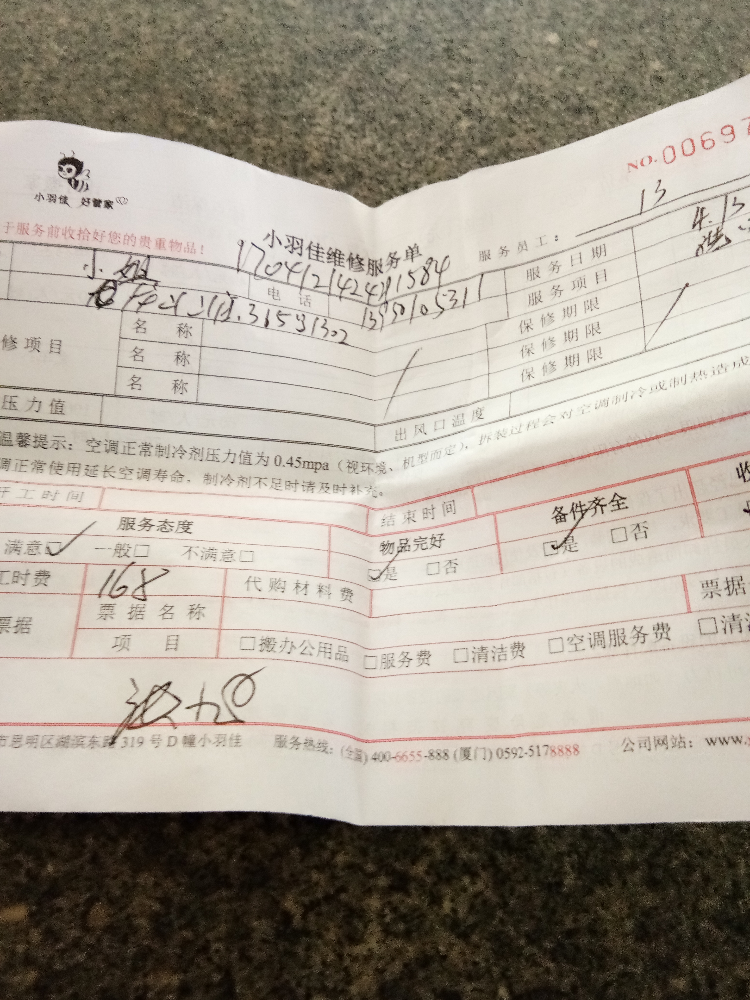 NO.00697
小羽佳 好管家
于服务前收拾好您的贵重物品！
小羽佳维修服务单
服务员工： 13
小姐
17041214241584
电 话
13950105311
服务日期 4.13
服务项目 洗
修项目
名 称
保修期限
名 称
保修期限
名 称
保修期限
压力值
出风口温度
温馨提示：空调正常制冷剂压力值为 0.45mpa（视环境、机型而定），拆装过程会对空调制冷或制热造成
调正常使用延长空调寿命，制冷剂不足时请及时补充。
开工时间
结束时间
服务态度
物品完好
备件齐全
收
满意□✓ 一般□ 不满意□
□是 □否
□是 □否
工时费 168
代购材料费
票据
票据名称
票据
项 目
□搬办公用品 □服务费 □清洁费 □空调服务费 □清
市思明区湖滨东路 319 号 D 幢小羽佳 服务热线：(全国) 400-6655-888 (厦门) 0592-5178888 公司网站：www.